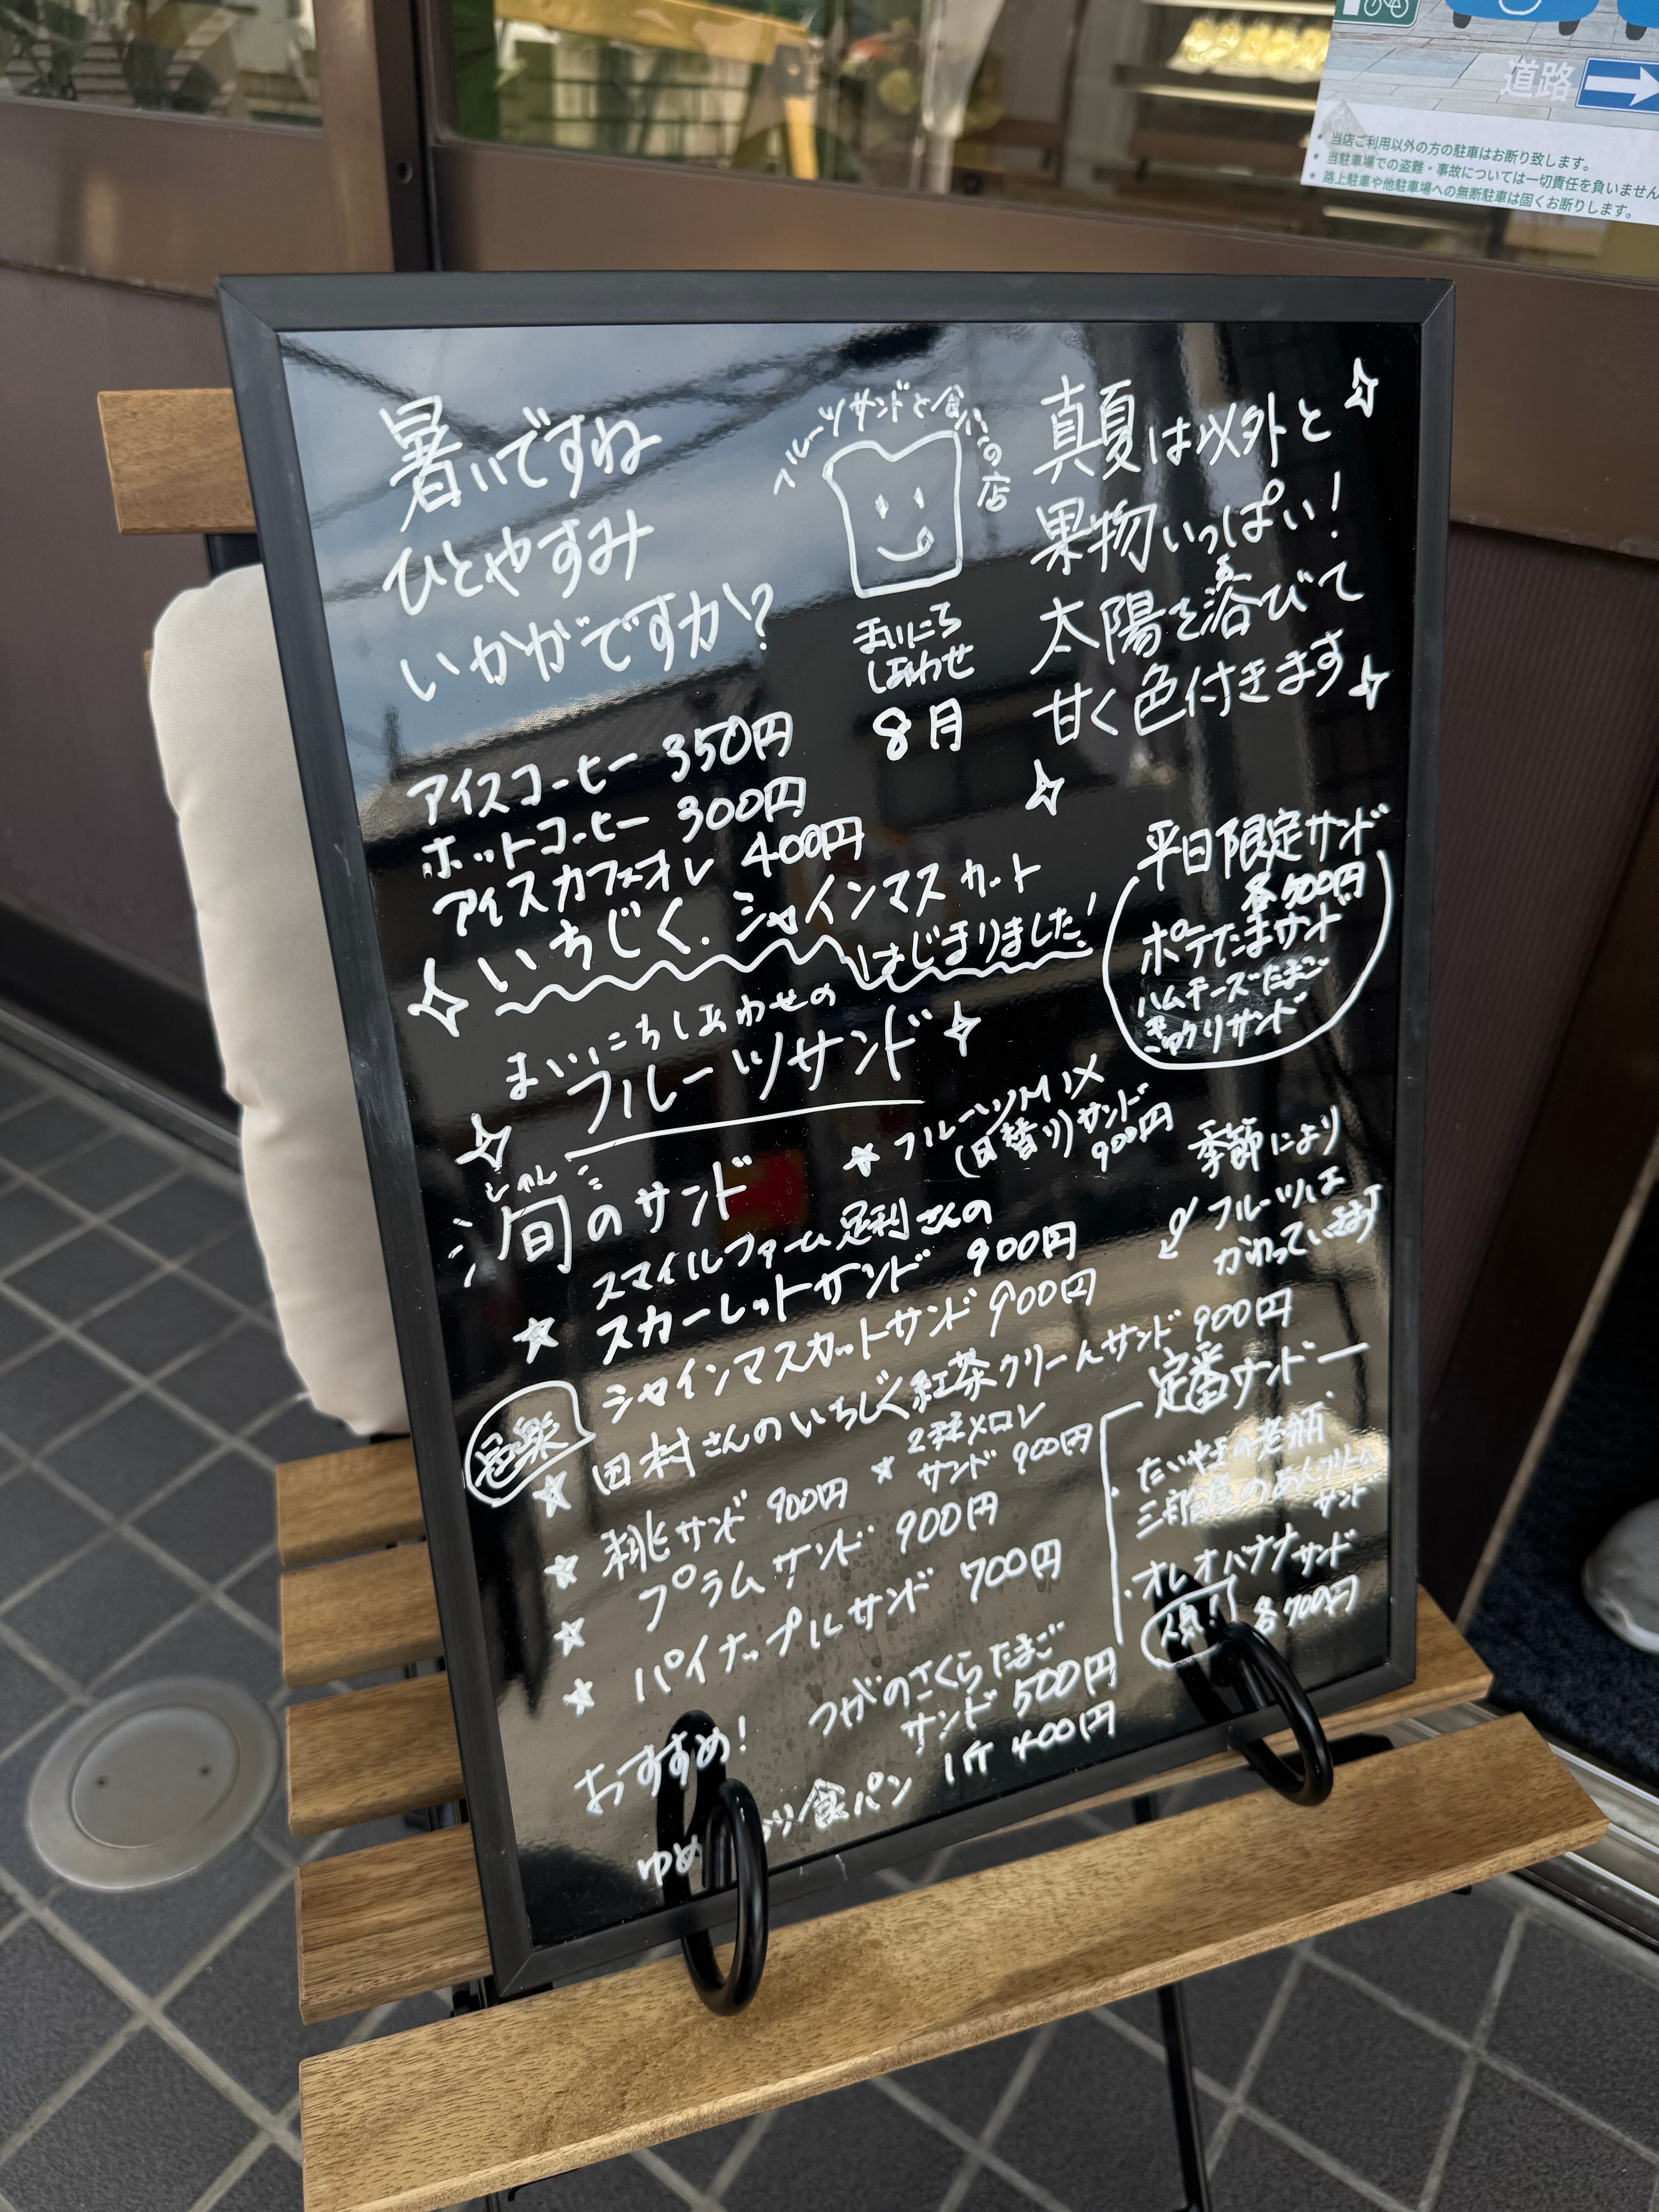 道路
・当店ご利用以外の方の駐車はお断り致します。
・当駐車場での盗難・事故については一切責任を負いません
・路上駐車や他駐車場への無断駐車は固くお断りします。
暑いですね
ひとやすみ
いかがですか?
フルーツサンドと食パンの店
まいにち
しあわせ
8月
真夏は以外と
果物いっぱい!
太陽を浴びて
甘く色付きます
アイスコーヒー 350円
ホットコーヒー 300円
アイスカフェオレ 400円
いちじく.シャインマスカット
はじまりました!
平日限定サンド
各500円
ポテたまサンド
ハムチーズたまご
きゅうりサンド
まいにちしあわせの
フルーツサンド
★フルーツMIX
(日替り)サンド
900円
季節により
フルーツは
かわっています
しゅん
旬のサンド
スマイルファーム足利さんの
★スカーレットサンド 900円
シャインマスカットサンド 900円
★田村さんのいちじく紅茶クリームサンド 900円
★桃サンド 900円
★2種メロン
サンド 900円
★プラムサンド 900円
★パイナップルサンド 700円
定番サンド
・たいやきの老舗
のあんクリーム
サンド
・オレオバナナサンド
人気! 各700円
おすすめ!
つがのさくらたまご
サンド 500円
ゆめ 食パン 1斤 400円